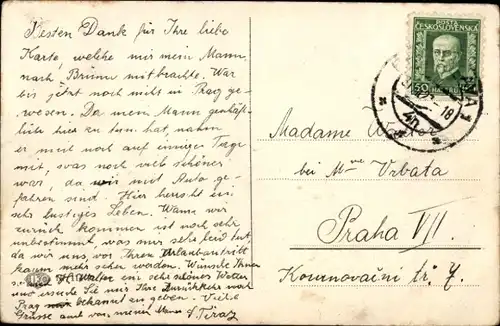 Besten Dank für Ihre liebe
Karte, welche mir mein Mann
nach Brünn mitbrachte. War
bis jetzt noch nicht in Prag ge-
wesen. Da mein Mann geschäft-
lich hier zu tun hat, nahm
er mich noch auf einige Tage
mit, was noch viel schöner
war, da wir mit Auto ge-
fahren sind. Hier herrscht ein
sehr lustiges Leben. Wann wir
zurück kommen ist noch sehr
unbestimmt, was mir sehr leid tut
da wir uns, vor Ihrem Urlaubantritt
kaum mehr sehen werden. Wünsche Ihnen
sehr schönes Wetter
und Sie mir Ihre Zurückkehr nach
Prag bekannt zu geben. Viele
Grüsse auch von meinem Mann
POŠTA
ČESKOSLOVENSKÁ
50
50
PRAHA 1
18
Madame
bei Mme Vrbata
Praha VII